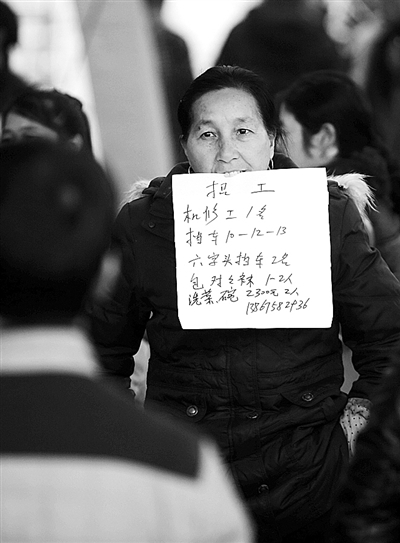 招 工
机修工 1名
挡车 10-12-13
六字头挡车 2名
包 对 1-2人
洗菜.碗 2300元 2人